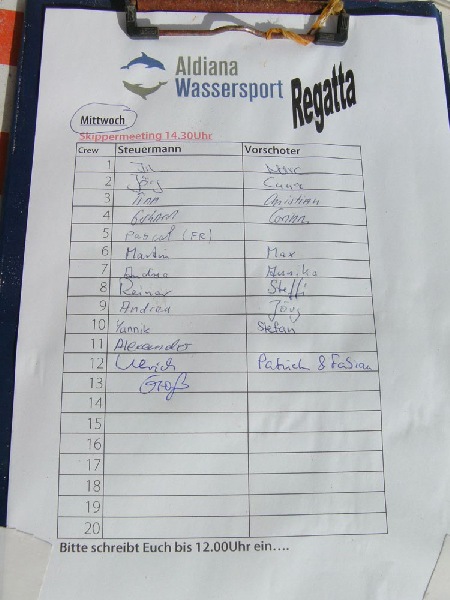 Aldiana
Wassersport
Regatta
Mittwoch
Skippermeeting 14.30Uhr
Crew Steuermann Vorschoter
1
2 Jörg
3 Christian
4
5 Pascal (FR)
6 Martin Max
7 Andrea Annika
8 Reiner Steffi
9 Andrea Jörg
10 Yannik Stefan
11 Alexander
12 Ulrich Patrick & Fabian
13 Groß
14
15
16
17
18
19
20
Bitte schreibt Euch bis 12.00Uhr ein....